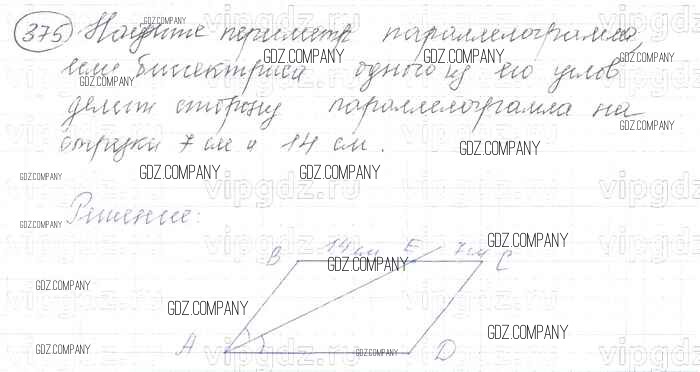 375. Найдите периметр параллелограмма,
GDZ.COMPANY
GDZ.COMPANY GDZ.COMPANY GDZ.COMPANY
если биссектриса одного из его углов
GDZ.COMPANY
делит сторону параллелограмма на
GDZ.COMPANY
отрезки 7 см и 14 см.
GDZ.COMPANY
GDZ.COMPANY GDZ.COMPANY GDZ.COMPANY
vipgdz.ru
Решение:
GDZ.COMPANY
B 14см E 7см C
GDZ.COMPANY
GDZ.COMPANY
GDZ.COMPANY
GDZ.COMPANY
GDZ.COMPANY
A D
GDZ.COMPANY GDZ.COMPANY